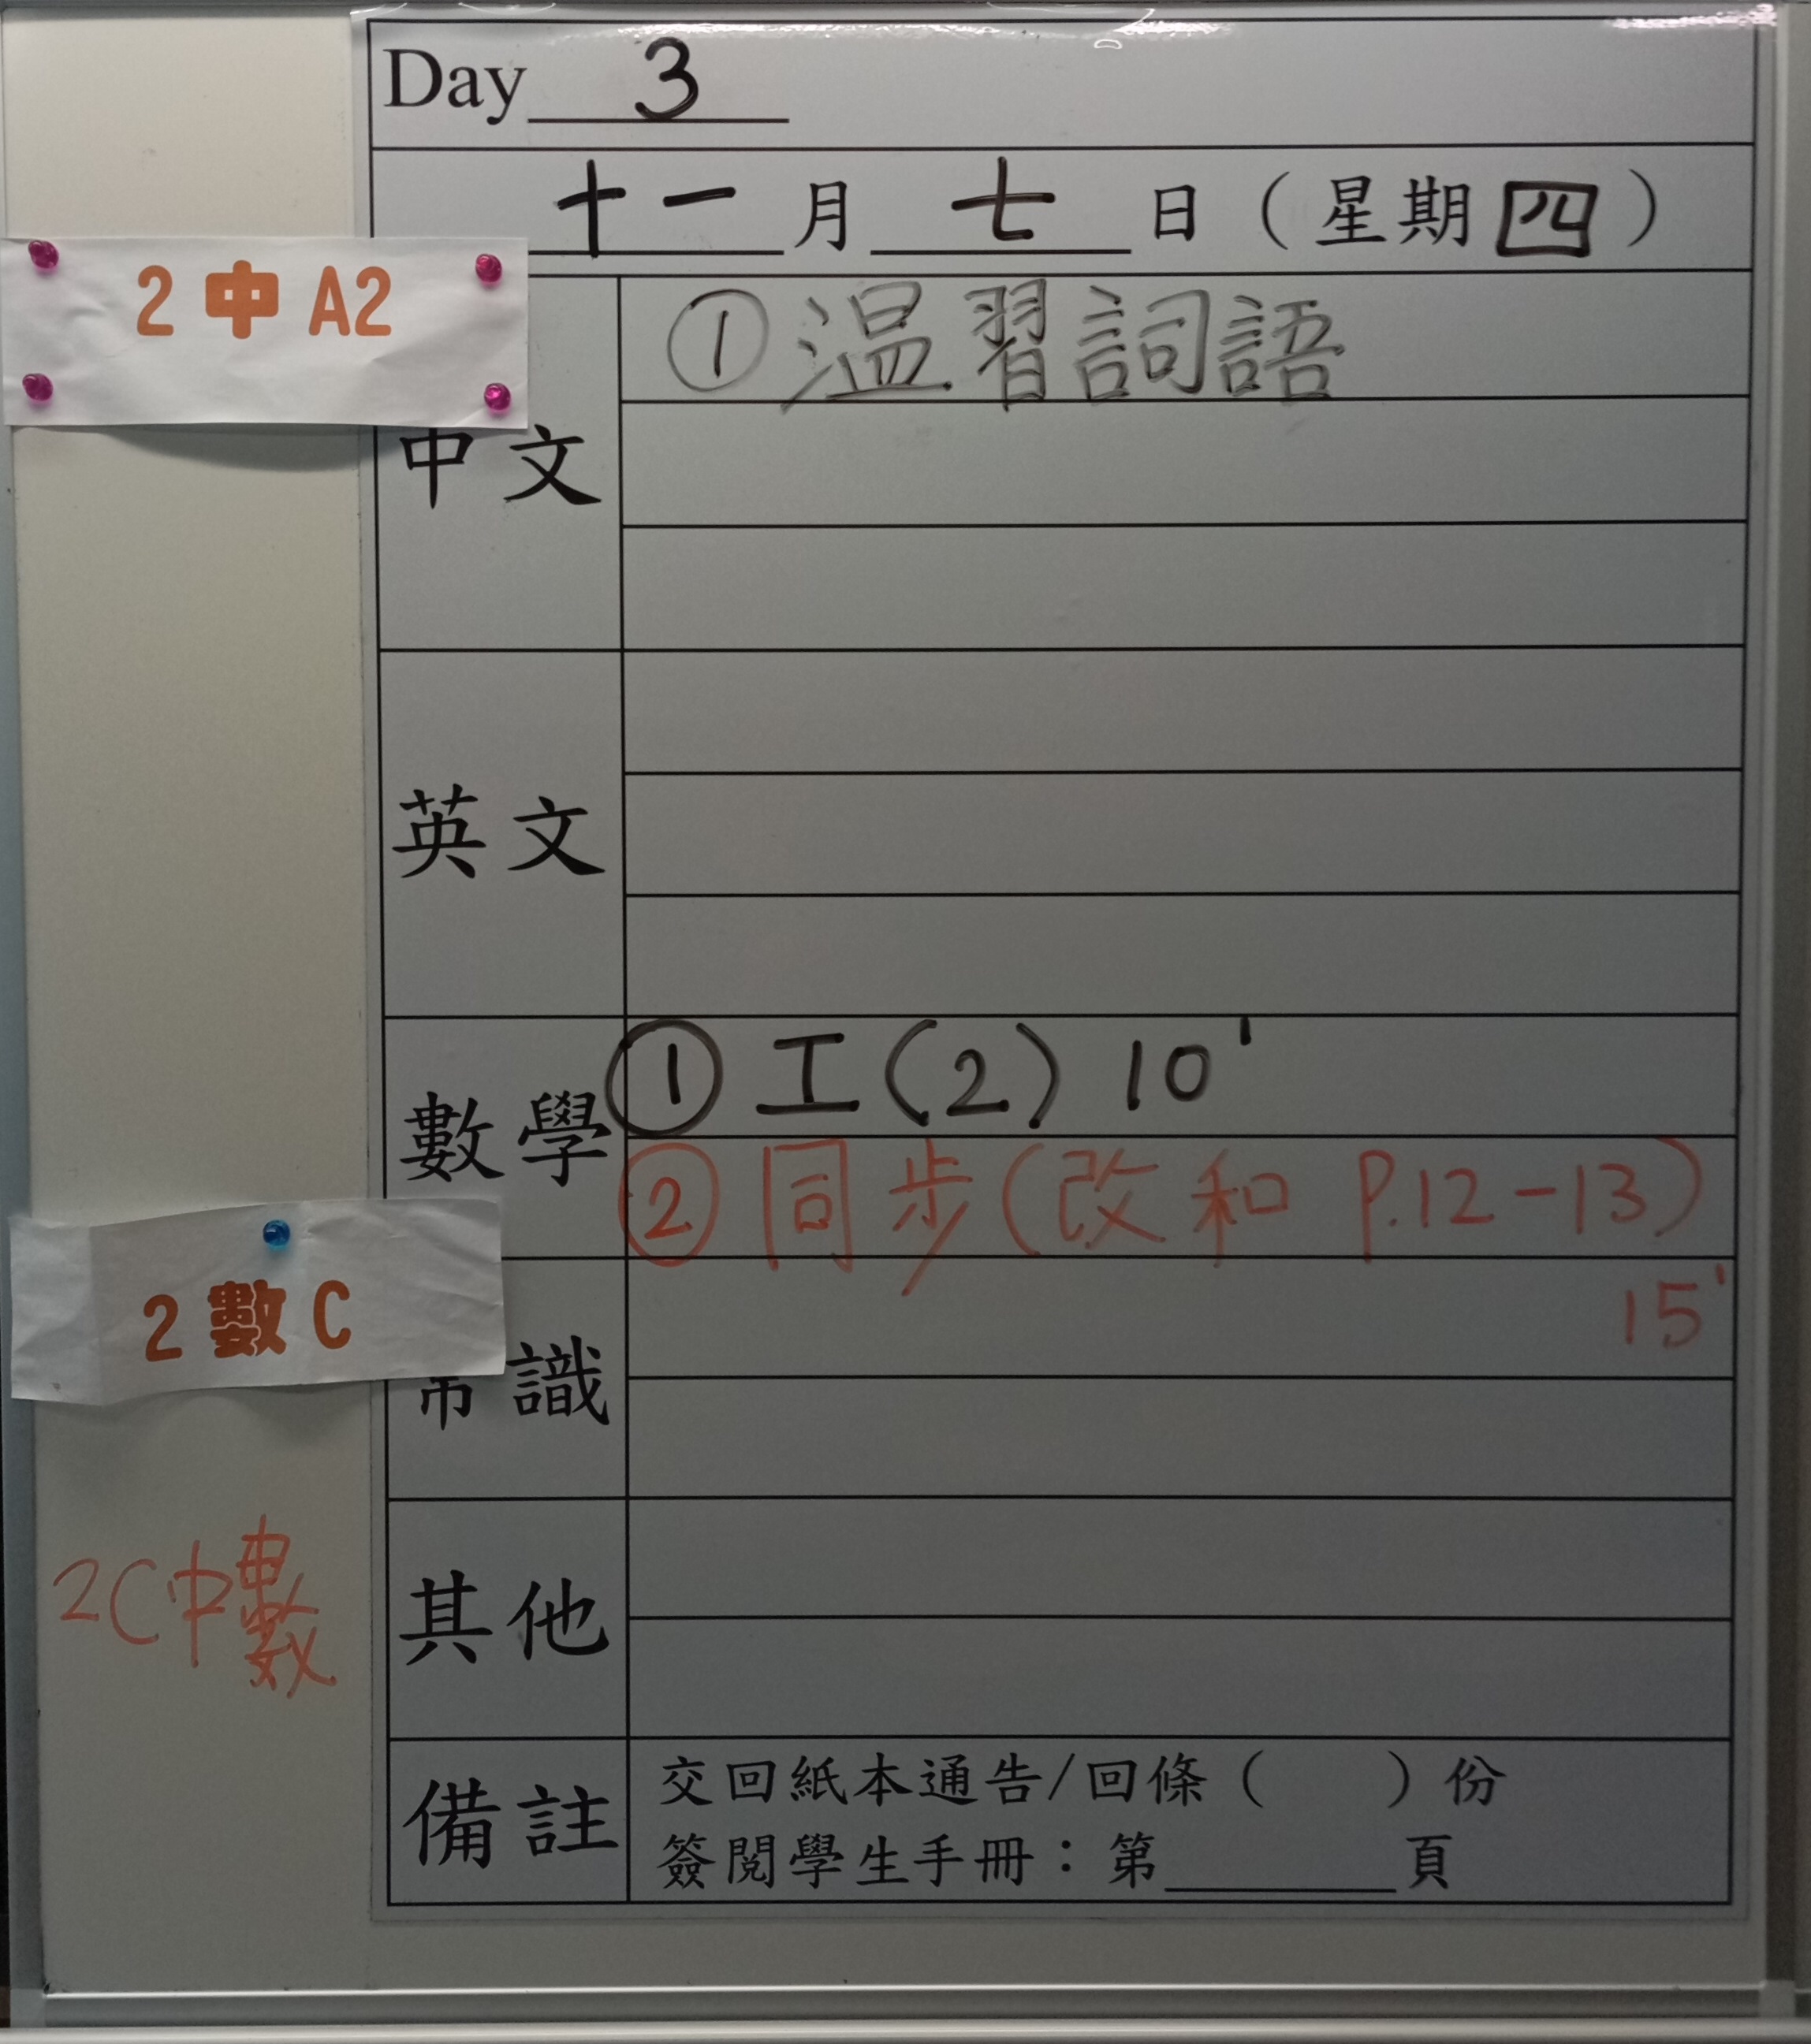 Day 3
十一月七日（星期四）
2 中 A2
中文
①温習詞語
英文
數學
① 工(2) 10'
② 同步(改和 P.12-13)
15'
2 數 C
常識
2C中數
其他
備註
交回紙本通告/回條（　　）份
簽閱學生手冊：第＿＿＿＿頁